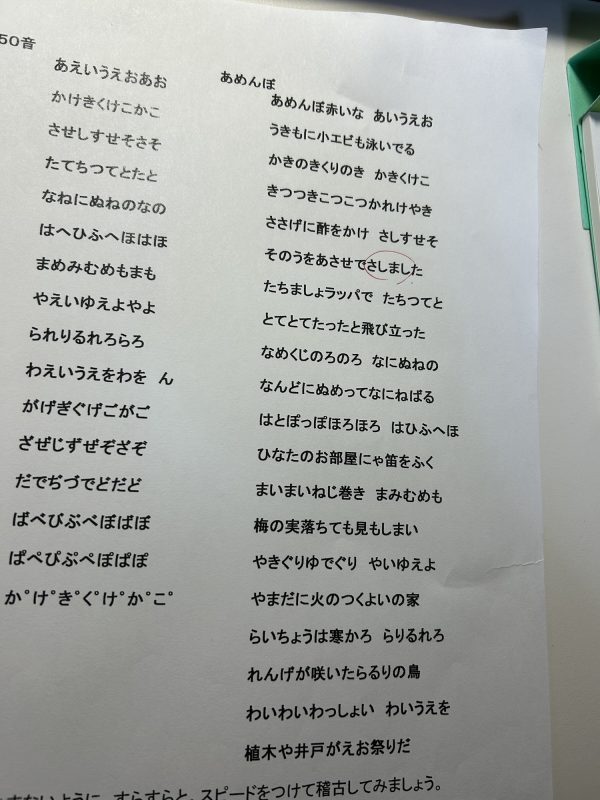 50音
あえいうえおあお
かけきくけこかこ
させしすせそさそ
たてちつてとたと
なねにぬねのなの
はへひふへほはほ
まめみむめもまも
やえいゆえよやよ
られりるれろらろ
わえいうえをわを ん
がげぎぐげごがご
ざぜじずぜぞざぞ
だでぢづでどだど
ばべびぶべぼばぼ
ぱぺぴぷぺぽぱぽ
か°け°き°く°け°か°こ°
あめんぼ
あめんぼ赤いな あいうえお
うきもに小エビも泳いでる
かきのきくりのき かきくけこ
きつつきこつこつかれけやき
ささげに酢をかけ さしすせそ
そのうをあさせでさしました
たちましょラッパで たちつてと
とてとてたったと飛び立った
なめくじのろのろ なにぬねの
なんどにぬめってなにねばる
はとぽっぽほろほろ はひふへほ
ひなたのお部屋にゃ笛をふく
まいまいねじ巻き まみむめも
梅の実落ちても見もしまい
やきぐりゆでぐり やいゆえよ
やまだに火のつくよいの家
らいちょうは寒かろ らりるれろ
れんげが咲いたらるりの鳥
わいわいわっしょい わいうえを
植木や井戸がえお祭りだ
すらすらと、スピードをつけて稽古してみましょう。